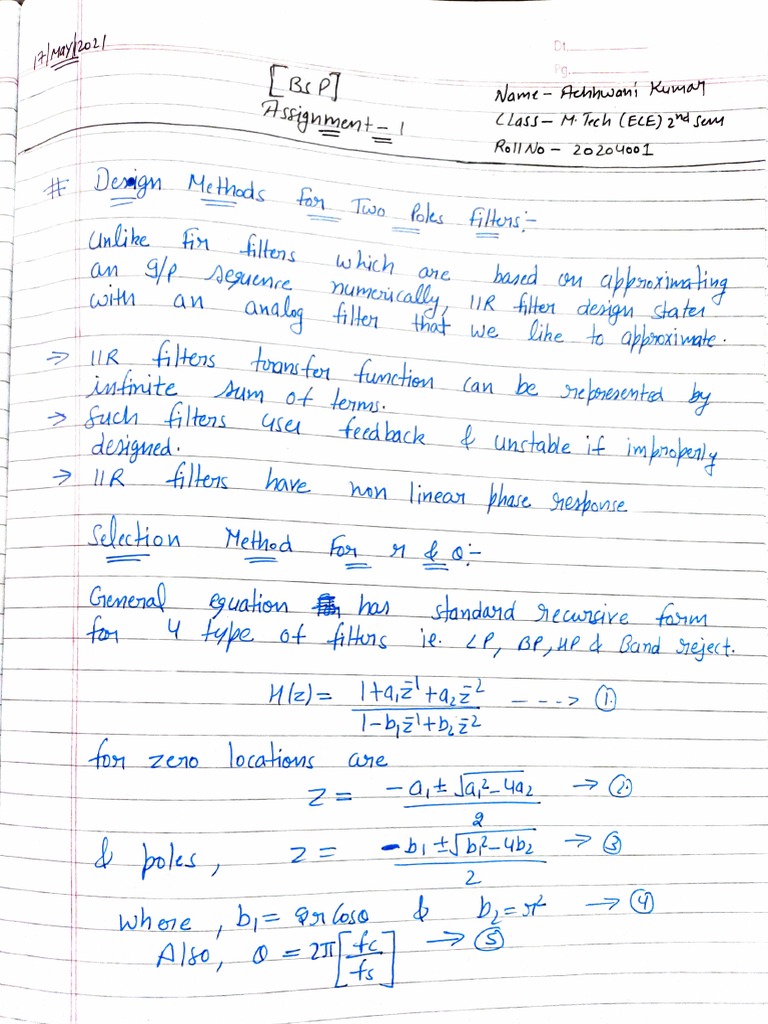 17/May/2021
Dt.
Pg.
[BSP]
Assignment - 1
Name - Achhwani Kumar
Class - M.Tech (ECE) 2nd sem
Roll No - 20204001
# Design Methods for Two Poles filters:-
Unlike Fir filters which are based on approximating
an I/P sequence numerically, IIR filter design stater
with an analog filter that we like to approximate.
→ IIR filters transfer function can be represented by
infinite sum of terms.
→ Such filters user feedback & unstable if improperly
designed.
→ IIR filters have non linear phase response
Selection Method For r & θ:-
General equation has standard recursive form
for 4 type of filters ie. LP, BP, HP & Band reject.
H(z) = (1+a₁z⁻¹+a₂z⁻²)/(1-b₁z⁻¹+b₂z⁻²) ---> ①
for zero locations are
z = (-a₁±√(a₁²-4a₂))/2 → ②
& poles, z = (-b₁±√(b₁²-4b₂))/2 → ③
where, b₁ = 2r Cosθ & b₂ = r² → ④
Also, θ = 2π[fc/fs] → ⑤